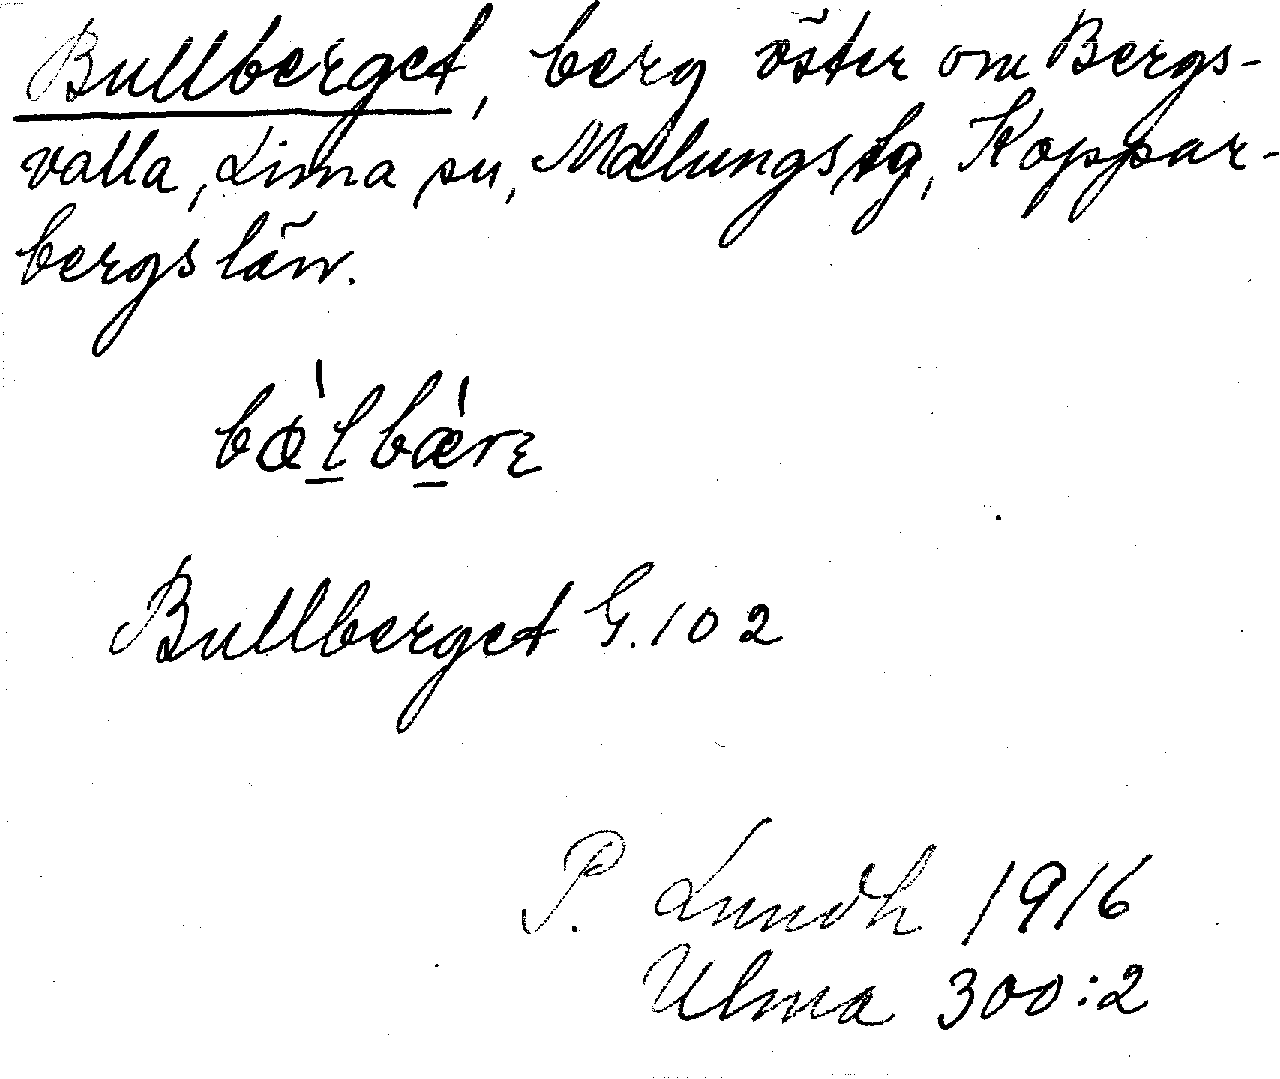 Bullberget, berg öster om Bergs-
valla, Lima sn, Malungs tg, Koppar-
bergs län.
Bullberget G. 102
P. Lundh 1916
Ulma 300:2